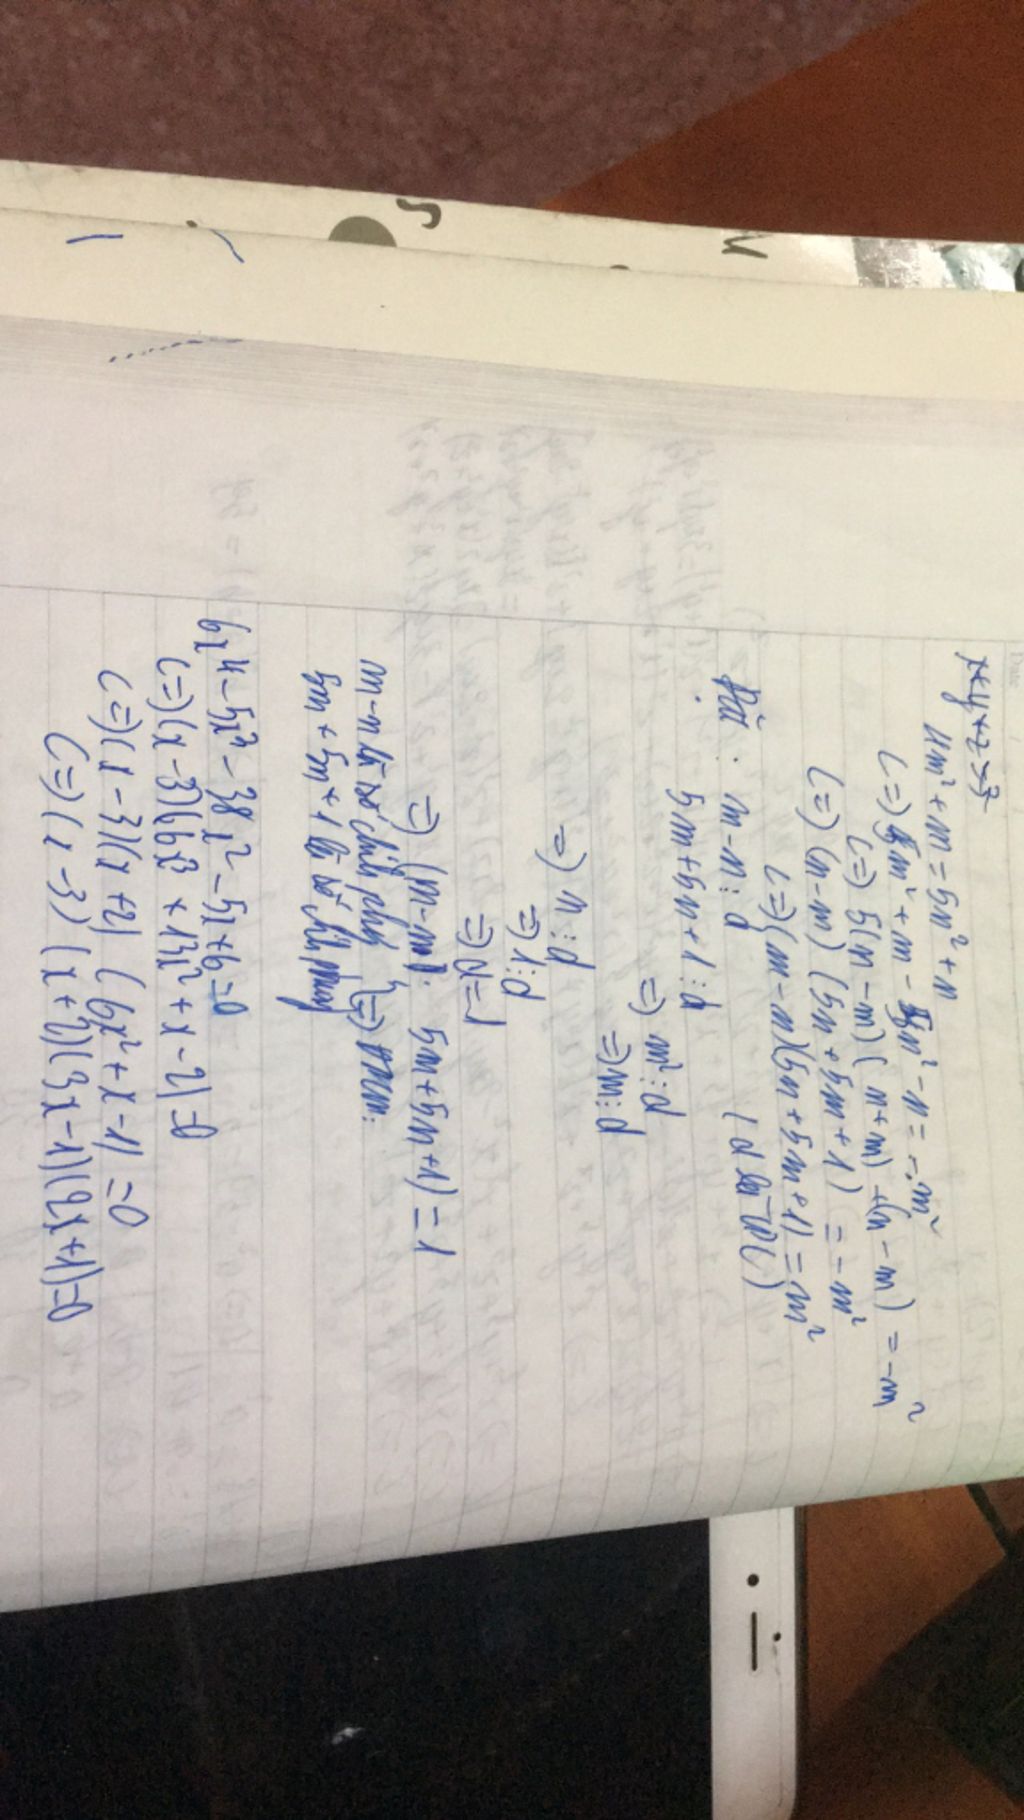 x+y+z=3
4m² + m = 5n² + n
<=> 5m² + m - 5n² - n = m²
<=> 5(n-m)(n+m) + (n-m) = -m²
<=> (n-m)(5n+5m+1) = -m²
<=> (m-n)(5n+5m+1) = m²
m-n ⋮ d (d là
5m+5n+1 ⋮ d
=> m² ⋮ d
=> m ⋮ d
=> n ⋮ d
=> 1 ⋮ d
=> d=1
=> (m-n; 5m+5n+1) = 1
m-n là số chính phương
5m+5n+1 là số chính phương } => đpcm.
6x⁴ - 5x³ - 38x² - 5x + 6 = 0
<=> (x-3)(6x³ + 13x² + x - 2) = 0
<=> (x-3)(x+2)(6x² + x - 1) = 0
<=> (x-3)(x+2)(3x-1)(2x+1) = 0